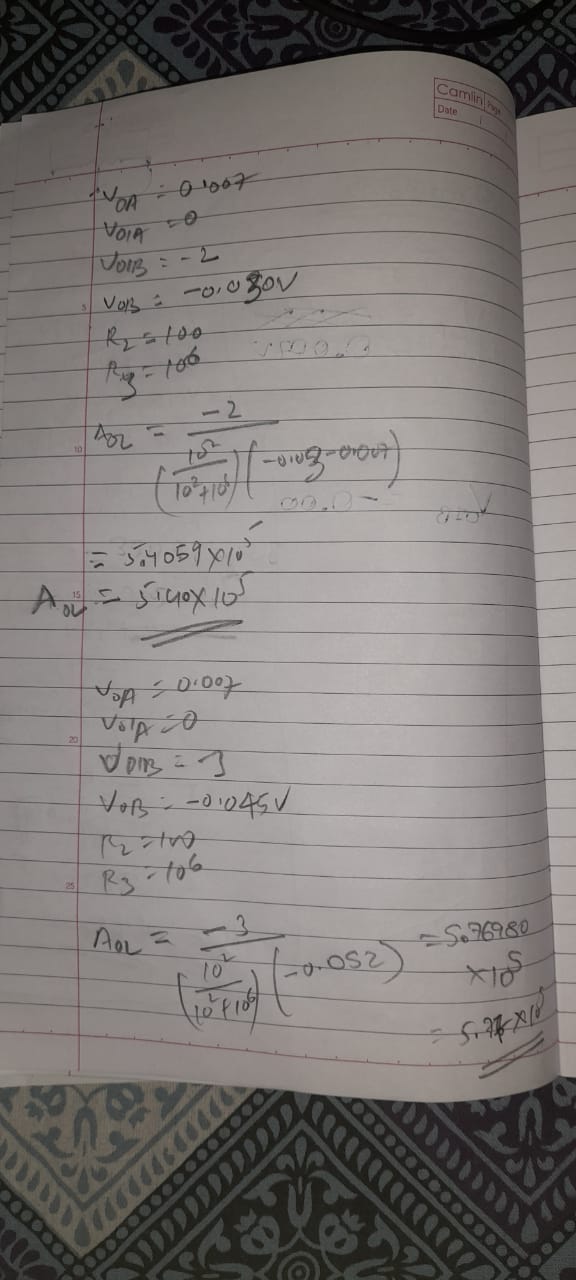 Camlin Page
Date
V0A = 0.007
V01A = 0
V01B = -2
V0B = -0.030V
5
R2 = 100
R3 = 10^6
AOL = -2 / (10^2 / 10^2+10^6) (-0.03-0.007)
10
= 5.4059 X 10^5
AOL = 5.40 X 10^5
15
V0A = 0.007
V01A = 0
20
V01B = -3
V0B = -0.045V
R2 = 100
R3 = 10^6
25
AOL = -3 / (10^2 / 10^2+10^6) (-0.052) = 5.76980
X 10^5
= 5.76 X 10^5